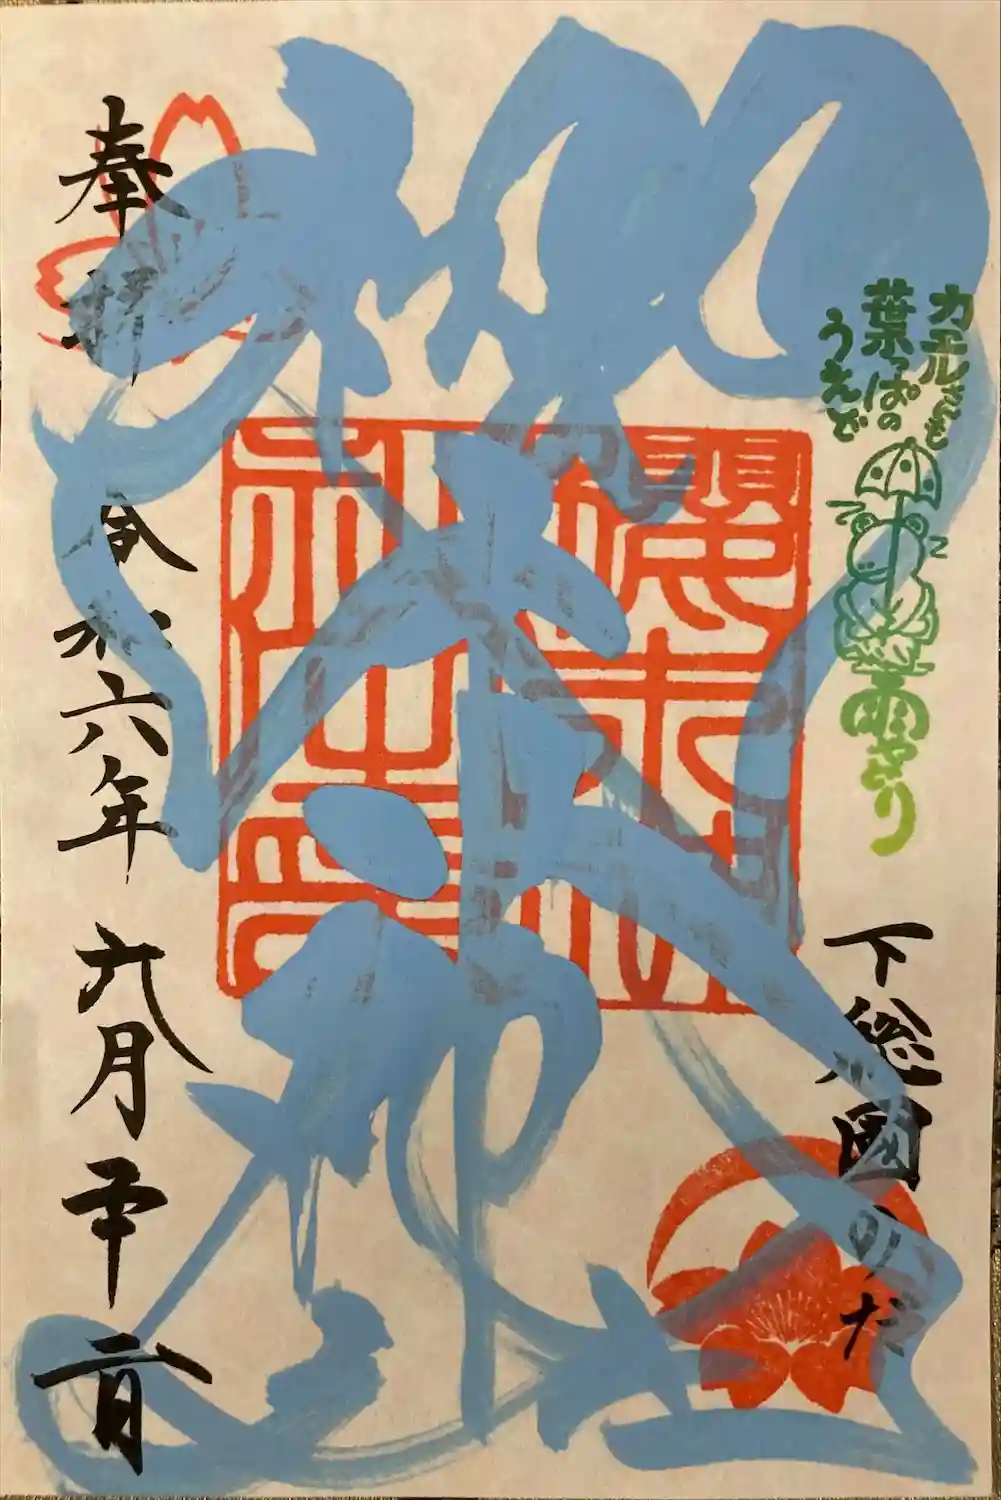 カエルさんも
葉っぱの
うえで
雨やどり
下総國のだ
櫻木神社
奉拝
令和六年六月二十二日